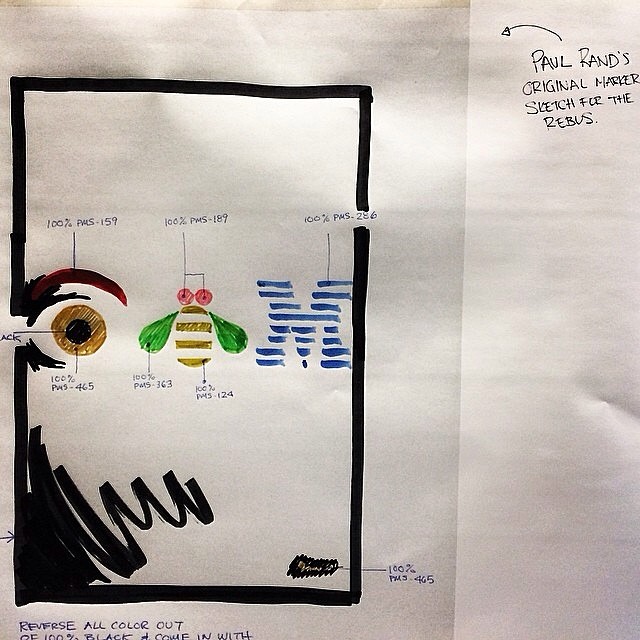 PAUL RAND'S
ORIGINAL MARKER
SKETCH FOR THE
REBUS.
100% PMS-159
100% PMS-189
100% PMS-286
M
ACK
100%
PMS-465
100%
PMS-363
100%
PMS-124
100%
PMS-465
REVERSE ALL COLOR OUT
OF 100% BLACK & COME IN WITH